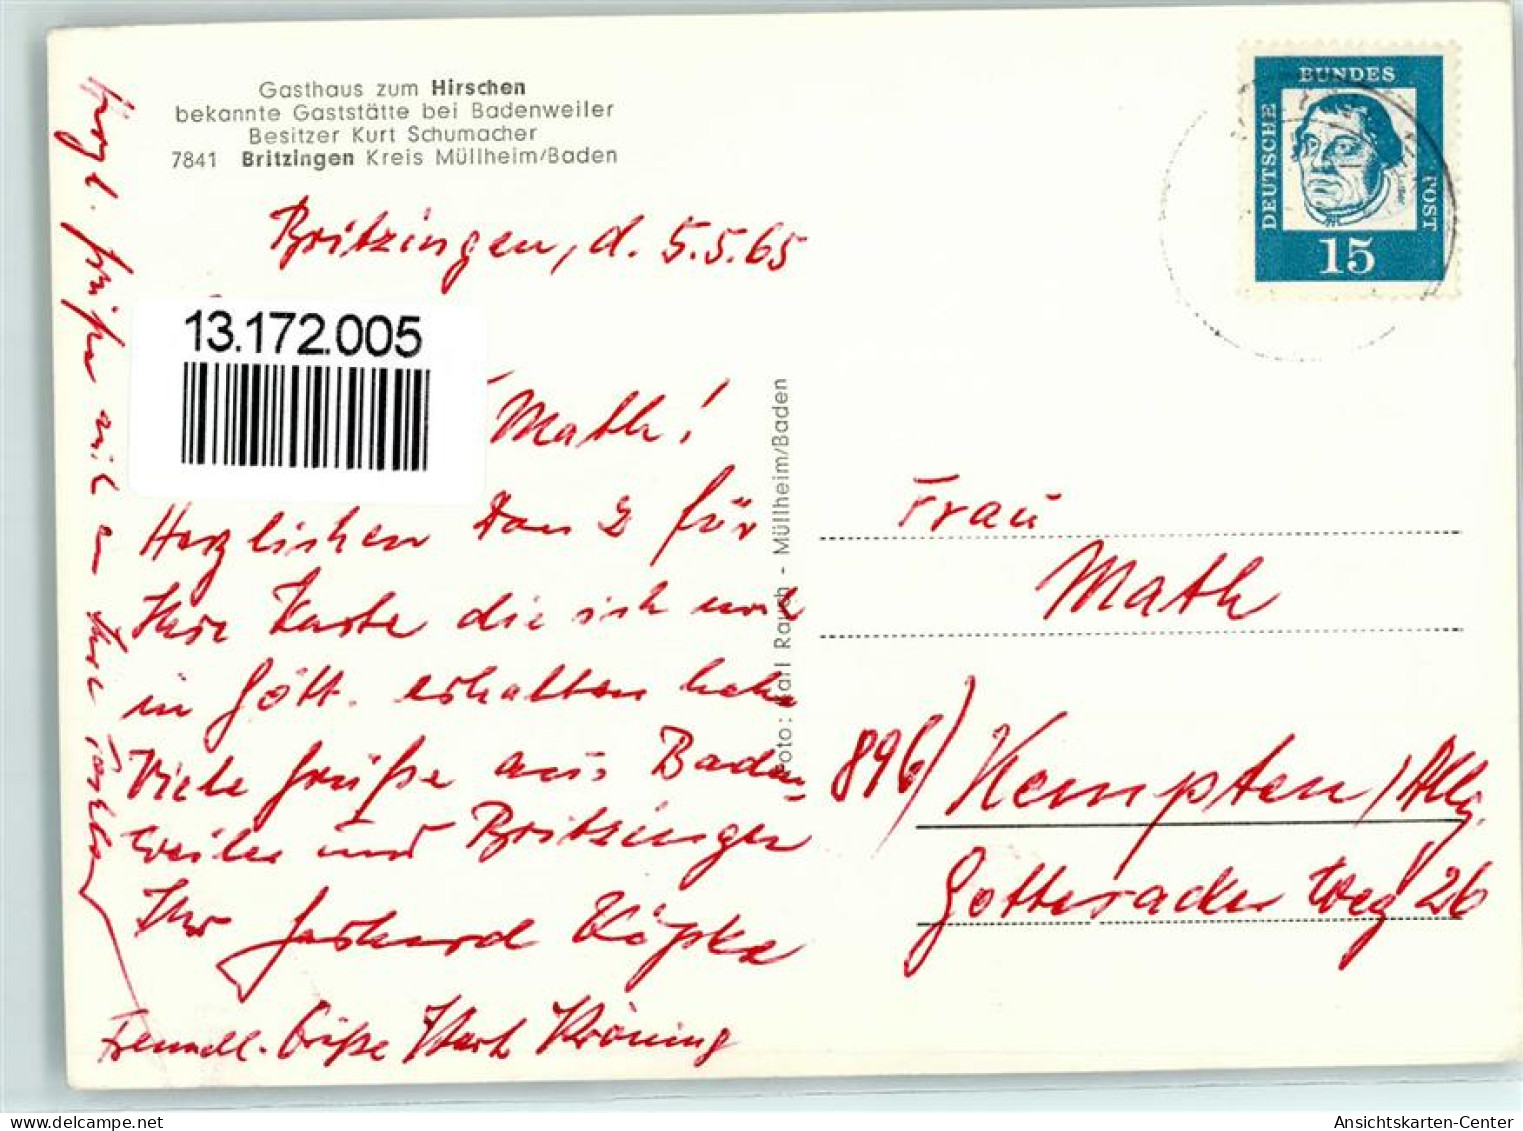 Gasthaus zum Hirschen
bekannte Gaststätte bei Badenweiler
Besitzer Kurt Schumacher
7841 Britzingen Kreis Müllheim/Baden
Britzingen, d. 5.5.65
13.172.005
Math!
Herzlichen Dank für
Ihre Karte die ich noch
in Gött. erhalten habe
Viele Grüße aus Baden-
weiler und Britzingen
Ihr Gerhard Köpke
Freundl. Grüße Horst Kröning
Herzl. Grüße auch an Ihre Tochter
Foto: Karl Rauch - Müllheim/Baden
DEUTSCHE BUNDES POST
15
Frau
Math
896) Kempten/Allg.
Gottesacker Weg 26
oldthing.net
Ansichtskarten-Center